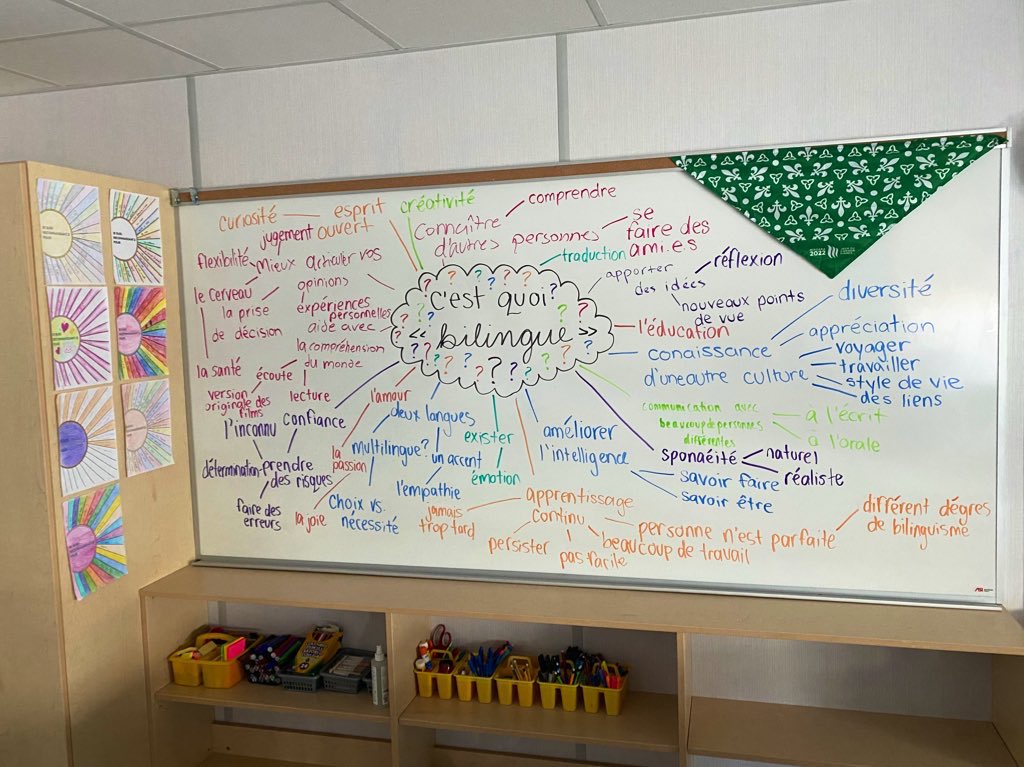 c'est quoi?
<< bilingue >>
curiosité
esprit
ouvert
jugement
flexibilité
mieux articuler vos
opinions
le cerveau
la prise
de décision
la santé
expériences
personnelles
aide avec
la compréhension
du monde
écoute
lecture
version
originale des
films
créativité
connaître
d'autres personnes
comprendre
se
faire des
ami.es
traduction
apporter
des idées
réflexion
nouveaux points
de vue
l'éducation
conaissance
d'une autre culture
diversité
appréciation
voyager
travailler
style de vie
des liens
communication avec
beaucoup de personnes
différentes
à l'écrit
à l'orale
sponaéité
naturel
réaliste
améliorer
l'intelligence
savoir faire
savoir être
exister
émotion
apprentissage
continu
jamais
trop tard
persister
pas facile
beaucoup de travail
personne n'est parfaite
différent dégres
de bilinguisme
deux langues
multilingue?
un accent
l'empathie
choix vs.
nécessité
l'amour
la
passion
la joie
confiance
l'inconnu
détermination
prendre
des risques
faire des
erreurs
2022